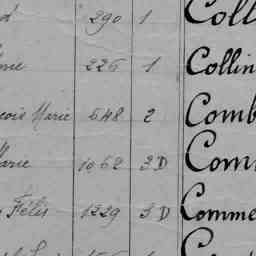 d 290 1 Coll
me 226 1 Collin
cois Marie 648 2 Comb
Marie 1062 3D Com
Félis 1229 3D Comme